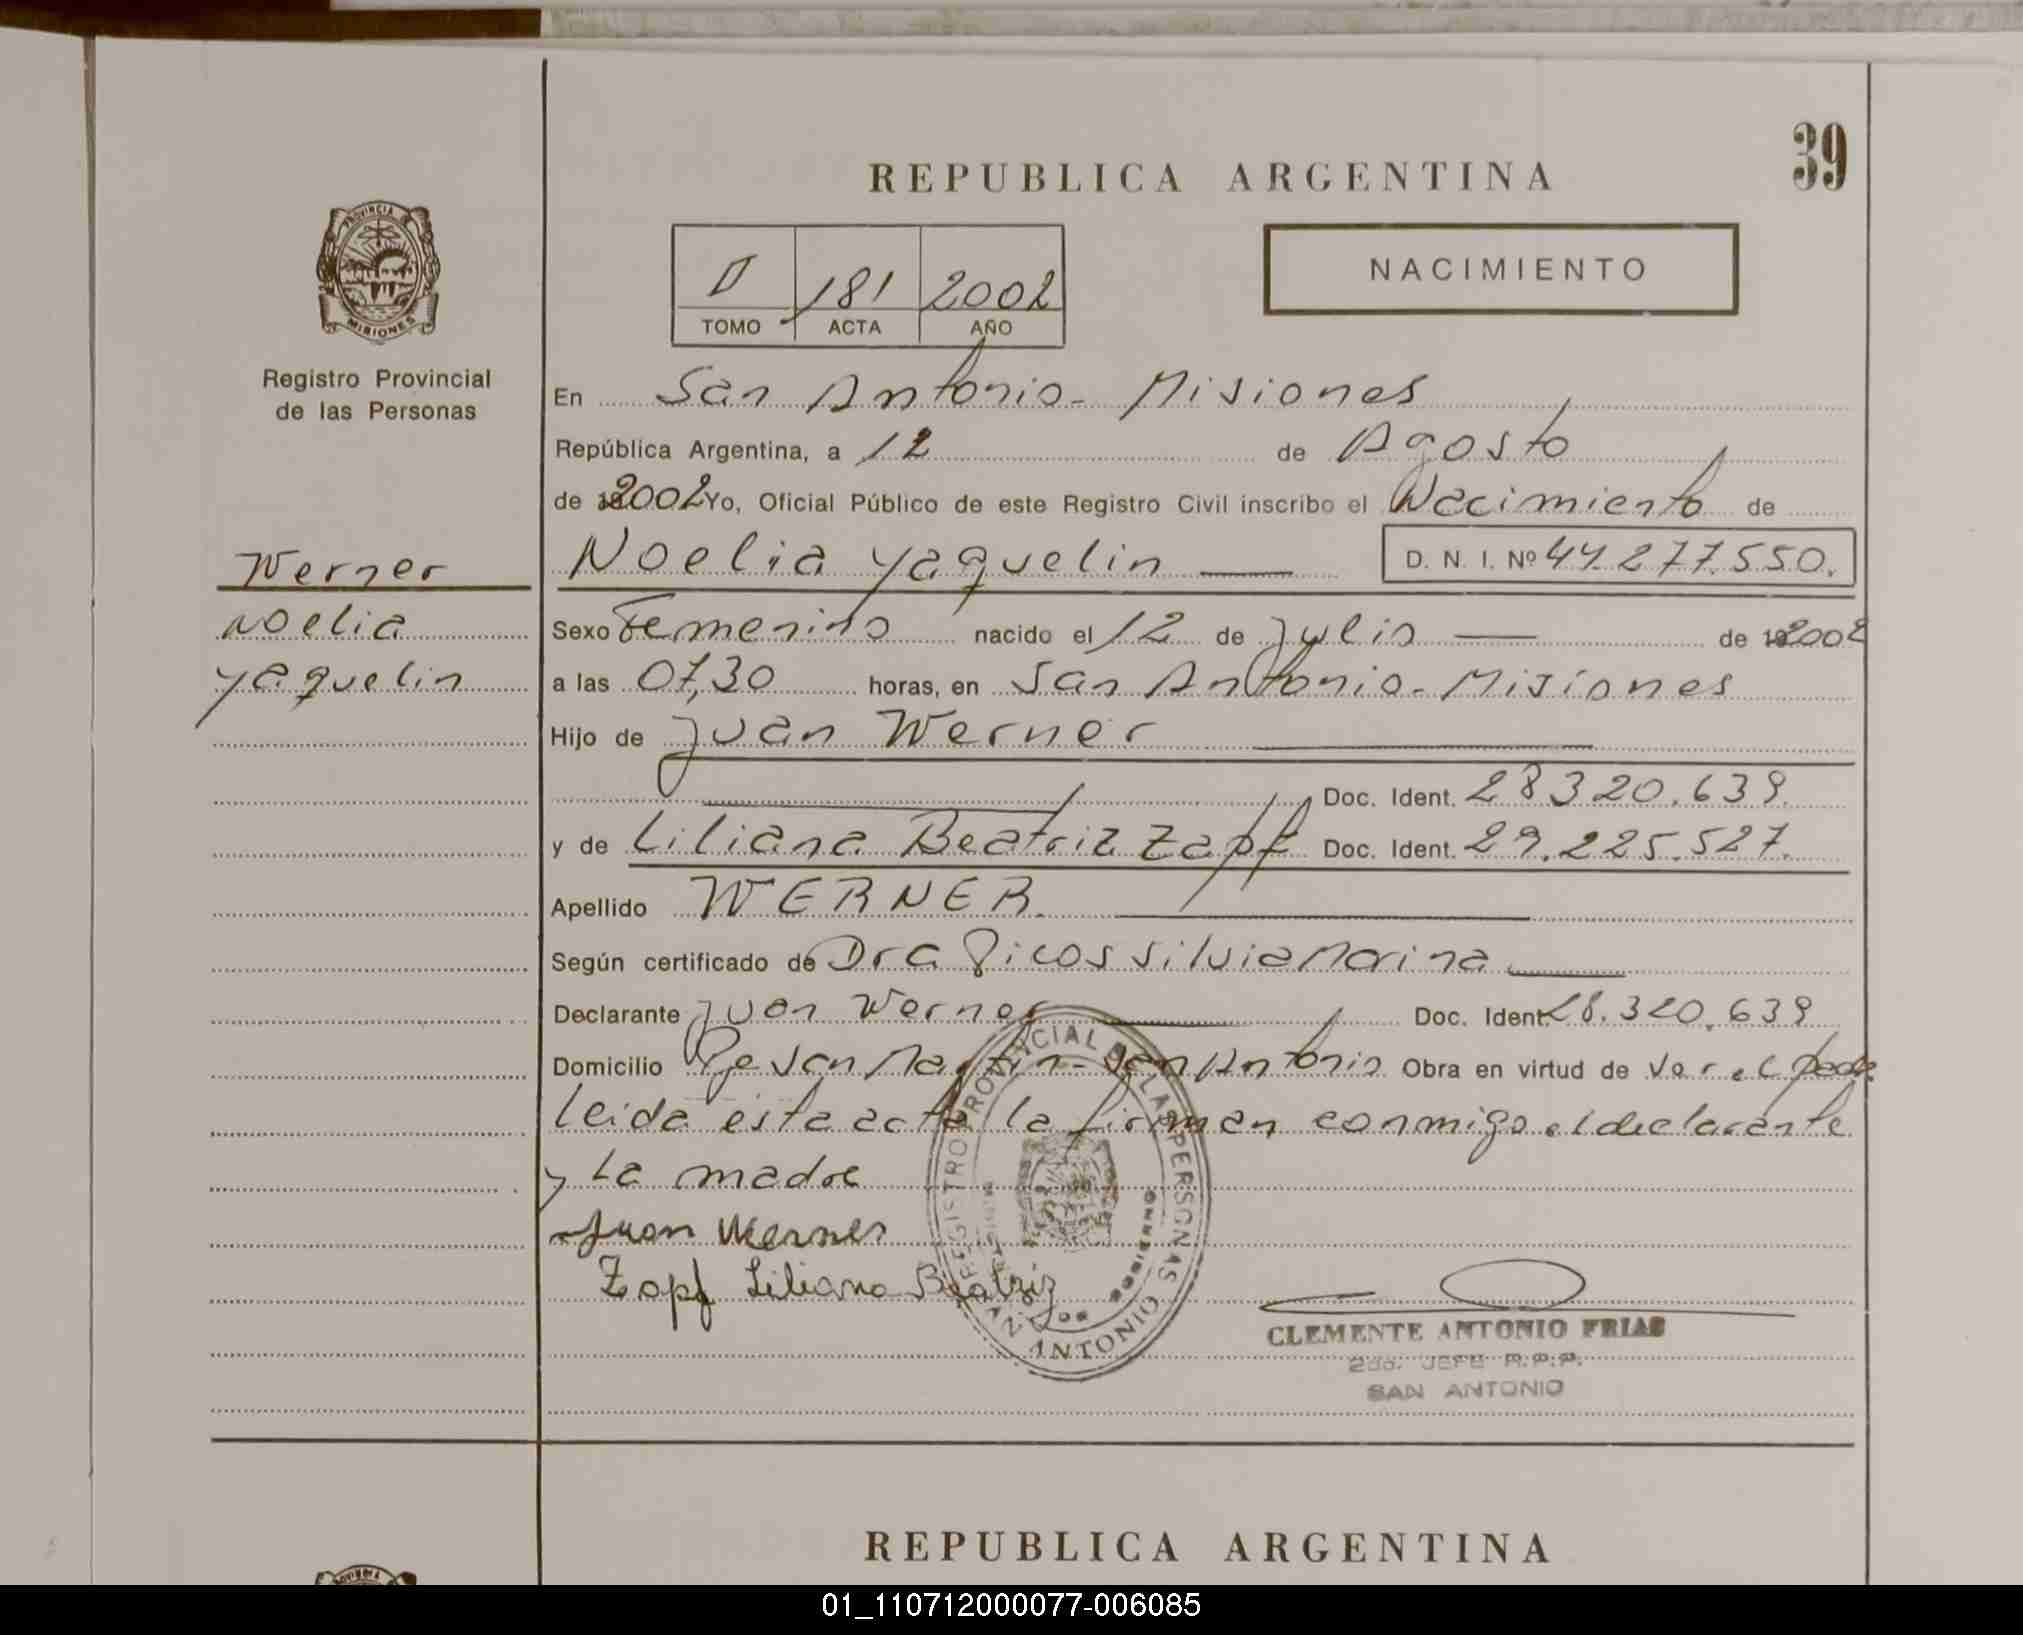 39
REPUBLICA ARGENTINA
PROVINCIA
MISIONES
181 2002
TOMO ACTA AÑO
NACIMIENTO
Registro Provincial
de las Personas
En San Antonio - Misiones
República Argentina, a 12 de Agosto
de 2002 Yo, Oficial Público de este Registro Civil inscribo el Nacimiento de
Werner
Noelia Yaquelin D. N. I. Nº 44.277.550.
Noelia
Sexo Femenino nacido el 12 de Julio de 2002
Yaquelin
a las 07,30 horas, en San Antonio - Misiones
Hijo de Juan Werner
Doc. Ident. 28320.639.
y de Liliana Beatriz Zapf Doc. Ident. 29.225.527.
Apellido WERNER.
Según certificado de Dra Picos Silvia Marina
Declarante Juan Werner Doc. Ident. 28.320.639
Domicilio San Martin - San Antonio Obra en virtud de ser el padre
leida esta acta la firman conmigo el declarante
y la madre
Juan Werner
Zapf Liliana Beatriz
REGISTRO PROVINCIAL DE LAS PERSONAS
SAN ANTONIO
CLEMENTE ANTONIO FRIAS
2do. JEFE R.P.P.
SAN ANTONIO
REPUBLICA ARGENTINA
01_110712000077-006085